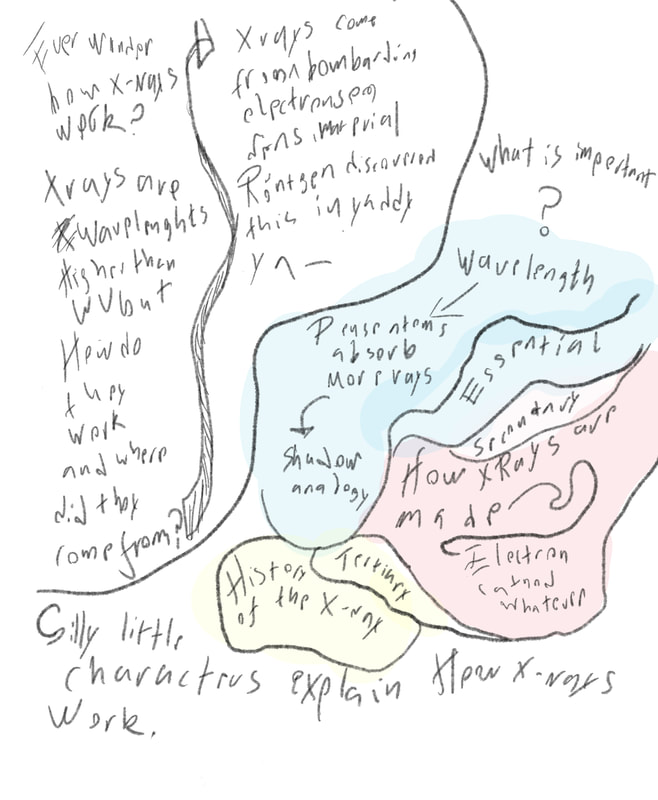 Ever wonder
how x-rays
work?
Xrays are
wavelenghts
higher than
UV but
How do
they
work
and where
did they
come from?
Xrays come
from bombarding
electrons on
dens material
Röntgen discovered
this in yaddy
y A —
what is important
?
wavelength
Dense atoms
absorb
more rays
shadow
analogy
Essential
secondary
How XRays are
made
Electron
cathod
whatever
Tertiary
History
of the X-ray
Silly little
charactrus explain How x-rays
work.